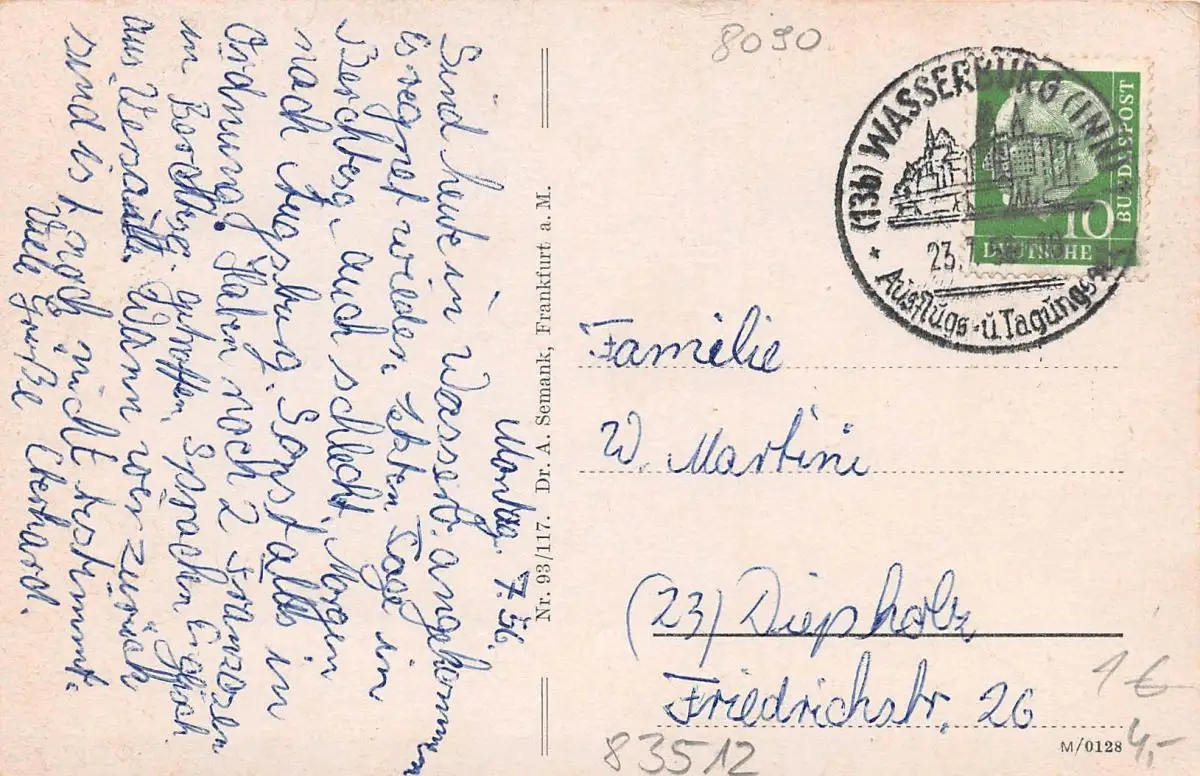 8090
(13b) WASSERBURG (INN)
23.
* Ausflugs- u. Tagungs
BUNDESPOST
10
DEUTSCHE
Montag. 7.56.
Sind heute in Wasserb. angekommen
es regnet wieder. letzten Tage in
Berchtesg. auch schlecht. Morgen
nach Augsburg. Sonst alles in
Ordnung. Haben noch 2 Franzosen
in getroffen, Sprachen Englisch
aus Wann wir zurück
sind ist noch nicht bestimmt.
Viele Grüße Eberhard.
Nr. 93/117. Dr. A. Semank, Frankfurt a. M.
Familie
W. Martini
(23) Diepholz
Friedrichstr. 26
1 €
4,-
83512
M/0128